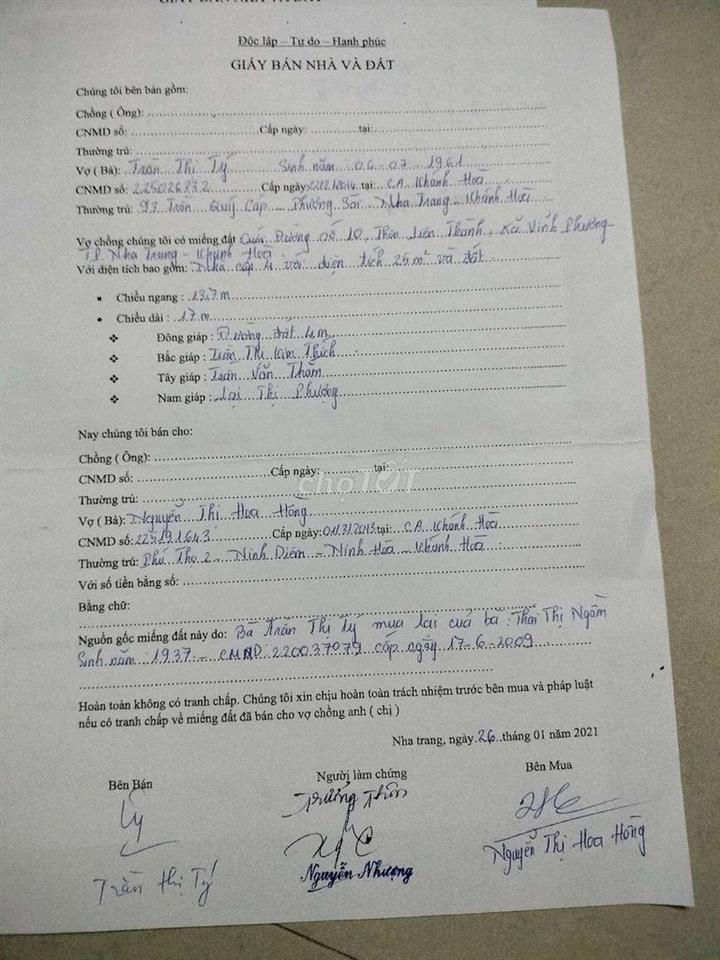 GIẤY BÁN NHÀ VÀ ĐẤT
Độc lập – Tự do – Hạnh phúc
GIẤY BÁN NHÀ VÀ ĐẤT
Chúng tôi bên bán gồm:
Chồng ( Ông):
CNMD số: Cấp ngày: tại:
Thường trú:
Vợ ( Bà): Trần Thị Tý Sinh năm: 06-07-1961
CNMD số: 225026732 Cấp ngày: 2014 tại: C.A Khánh Hoà
Thường trú: 93 Trần Quý Cáp - Phường Sài - Nha Trang - Khánh Hoà
Vợ chồng chúng tôi có miếng đất Cuối Đường số 10, Thôn Liên Thành, Xã Vĩnh Phương
TP. Nha Trang - Khánh Hoà
Với diện tích bao gồm: Nhà cấp 4 với diện tích 25m² và đất
• Chiều ngang : 13,7m
• Chiều dài : 17m
❖ Đông giáp : Đường đất 4m
❖ Bắc giáp : Trần Thị Kim Thích
❖ Tây giáp : Trần Văn Thắm
❖ Nam giáp : Lại Thị Phượng
Nay chúng tôi bán cho:
Chồng ( Ông):
CNMD số: Cấp ngày: tại:
chợTỐT
Thường trú:
Vợ ( Bà): Nguyễn Thị Hoa Hồng
CNMD số: 225191643 Cấp ngày: 01.3.2013 tại: C.A Khánh Hoà
Thường trú: Phú Thọ 2 - Ninh Diêm - Ninh Hoà - Khánh Hoà
Với số tiền bằng số:
Bằng chữ:
Nguồn gốc miếng đất này do: Bà Trần Thị Tý mua lại của bà: Thái Thị Ngâm
Sinh năm 1937 - CMND 220037079 cấp ngày 17-6-2009
Hoàn toàn không có tranh chấp. Chúng tôi xin chịu hoàn toàn trách nhiệm trước bên mua và pháp luật
nếu có tranh chấp về miếng đất đã bán cho vợ chồng anh ( chị )
Nha trang, ngày 26 tháng 01 năm 2021
Bên Bán Người làm chứng Bên Mua
Trưởng Thôn
Trần Thị Tý Nguyễn Nhượng Nguyễn Thị Hoa Hồng